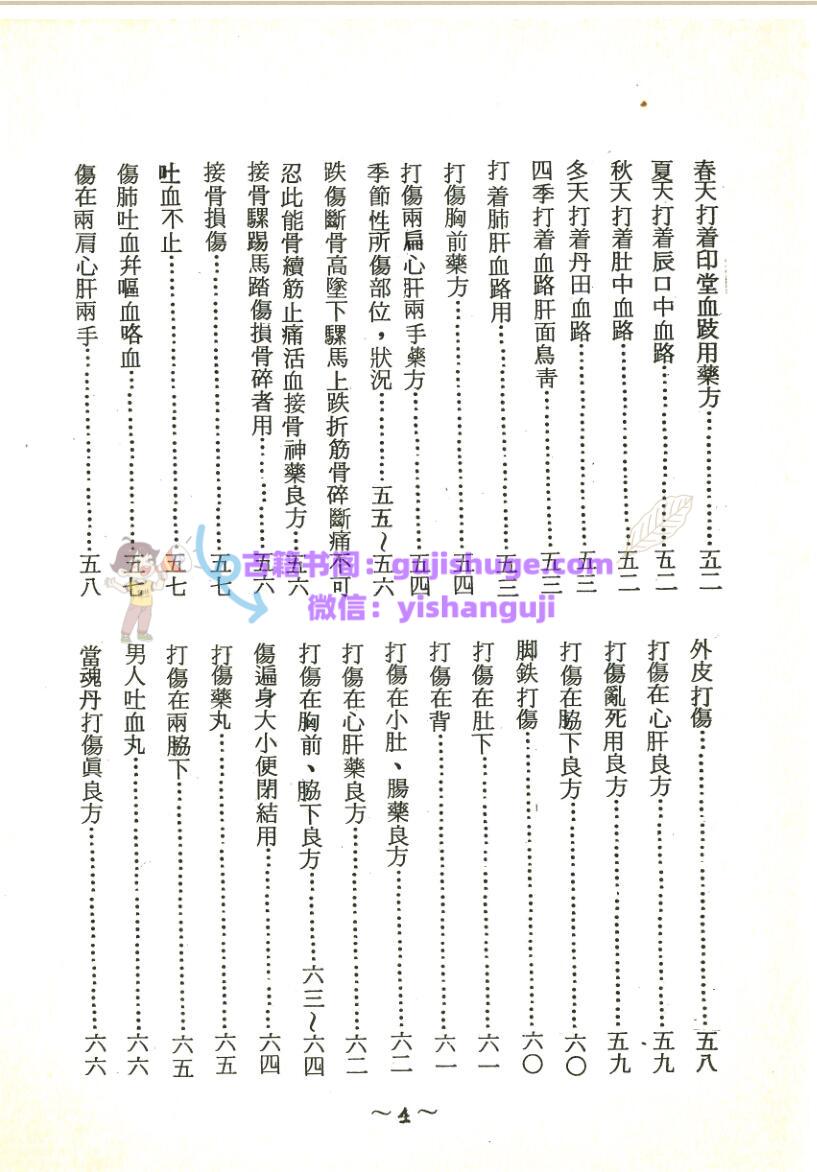 春天打着印堂血跂用藥方……五二
夏天打着辰口中血路……五二
秋天打着肚中血路……五二
冬天打着丹田血路……五三
四季打着血路肝面鳥靑……五三
打着肺肝血路用……五三
打傷胸前藥方……五四
打傷兩扁心肝兩手藥方……五四
季節性所傷部位，狀況……五五～五六
跌傷斷骨高墜下騾馬上跌折筋骨碎斷痛不可
忍此能骨續筋止痛活血接骨神藥良方……五六
接骨騾踢馬踏傷損骨碎者用……五六
接骨損傷……五七
吐血不止……五七
傷肺吐血幷嘔血咯血……五七
傷在兩肩心肝兩手……五八
外皮打傷……五八
打傷在心肝良方……五九
打傷亂死用良方……五九
打傷在脇下良方……六〇
脚鉄打傷……六〇
打傷在肚下……六一
打傷在背……六一
打傷在小肚、腸藥良方……六二
打傷在心肝藥良方……六二
打傷在胸前、脇下良方……六三～六四
傷遍身大小便閉結用……六四
打傷藥丸……六五
打傷在兩脇下……六五
男人吐血丸……六六
當魂丹打傷眞良方……六六
～4～
古籍书阁：gujishuge.com
微信：yishanguji